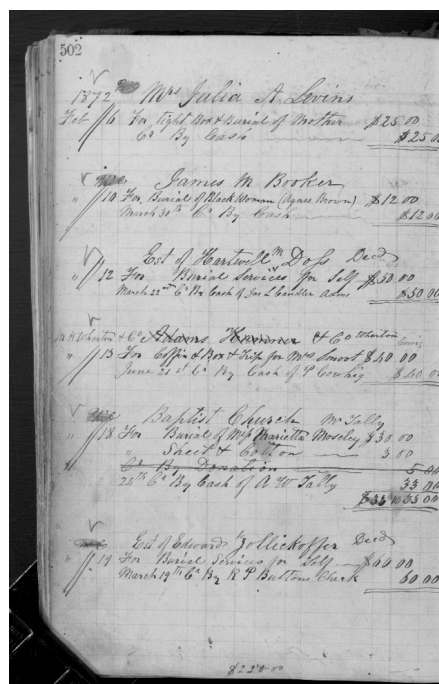 502
1872 Mrs Julia A Levins
Feb // 6 For Tight Box & Burial of Mother $25 00
Cr By Cash $25 00
James M Booker
" // 10 For Burial of Black Woman (Agnes Brown) $12 00
March 30th Cr By Cash $12 00
Est of Hartwell M Doss Decd
" // 12 For Burial Services for Self $50 00
March 22nd Cr By Cash of Jas L Candler Adm $50 00
M H Wharton & Co Adams Hammer & Co Wharton
" // 13 For Coffin & Box & Trip for Mrs $40 00
June 21st Cr By Cash of P Cowhig $40 00
Baptist Church Mr Tally
" // 18 For Burial of Miss Marietta Moseley $30 00
" Sheet & Cotton 3 00
Cr By Donation 5 00
20th Cr By Cash of A W Tally 33 00
$33 00 33 00
Est of Edward Zollickoffer Decd
" // 19 For Burial Services for Self $60 00
March 19th Cr By R P Buttons Check 60 00
$220-00